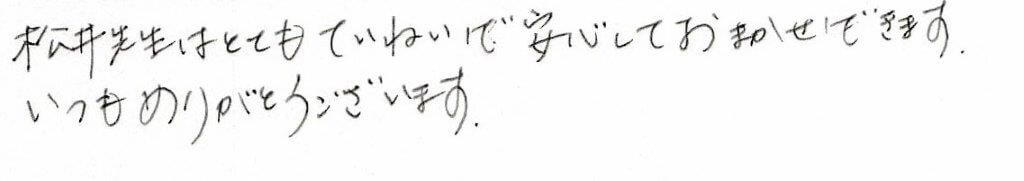 松井先生はとてもていねいで安心しておまかせできます.
いつもありがとうございます.